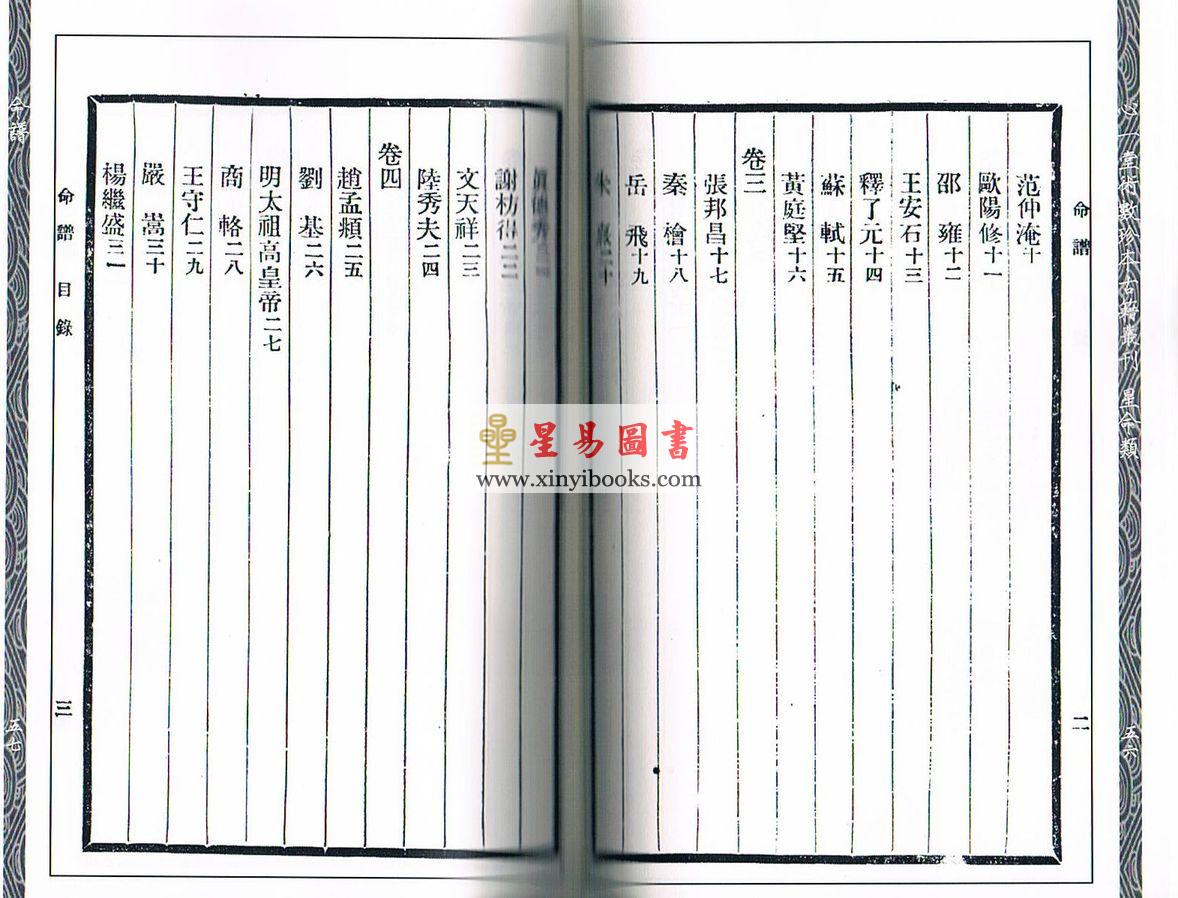 心一堂術數珍本古籍叢刊 星命類
五六
命譜
二
范仲淹十
歐陽修十一
邵 雍十二
王安石十三
釋了元十四
蘇 軾十五
黃庭堅十六
卷三
張邦昌十七
秦 檜十八
岳 飛十九
朱 二十
謝枋得二二
文天祥二三
陸秀夫二四
卷四
趙孟頫二五
劉 基二六
明太祖高皇帝二七
商 輅二八
王守仁二九
嚴 嵩三十
楊繼盛三一
命譜 目錄
三
命譜
五七
星易圖書
www.xinyibooks.com